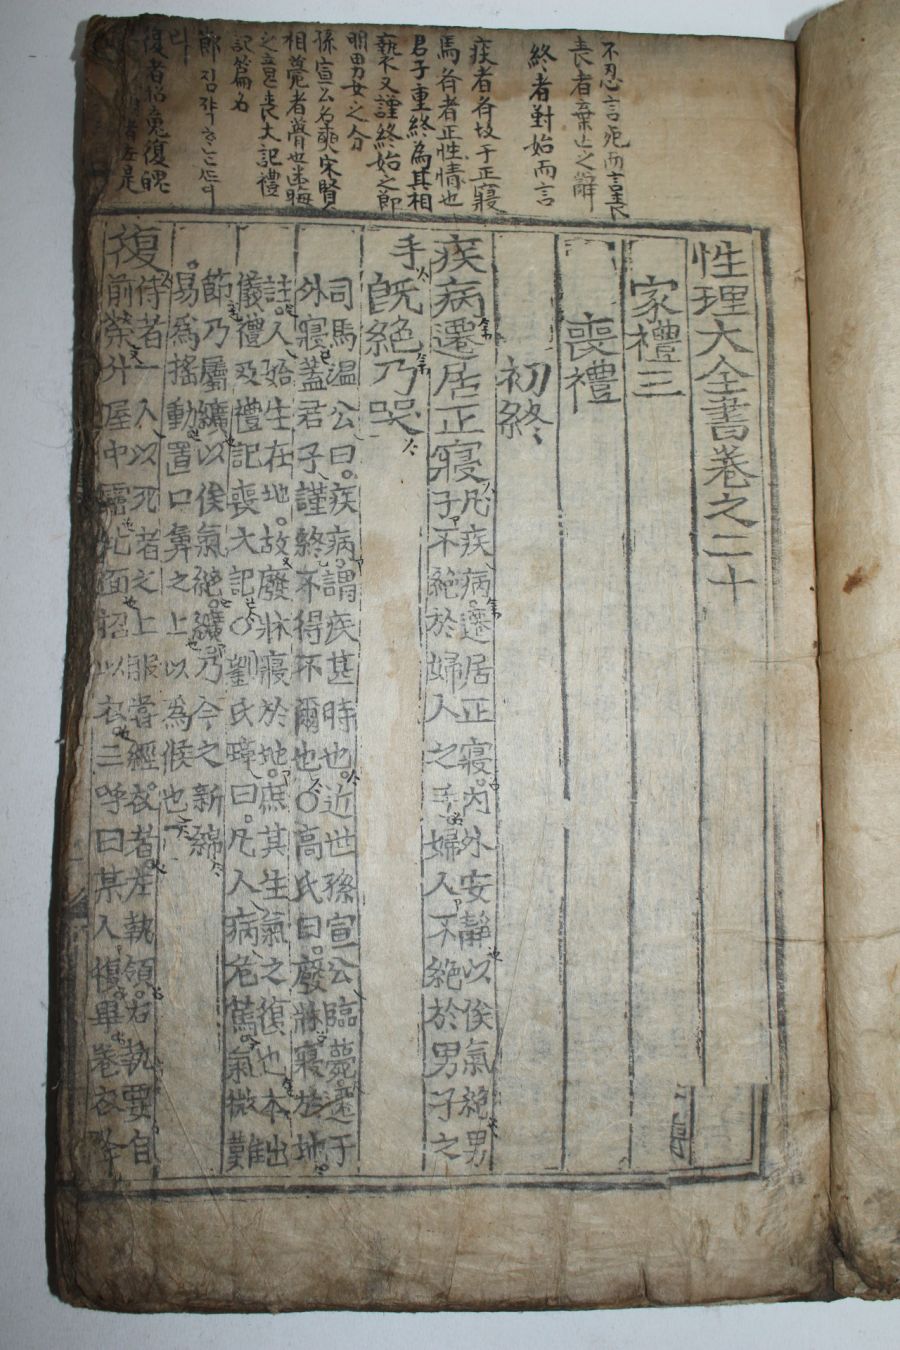 不忍言死而言喪
喪者棄亡之辭
終者對始而言
疾者各故于正寢
馬各者正性情也
君子重終為其相
褻又謹終始之節
明男女之分
孫宣公名奭宋賢人
相薨者薨也
之言喪大記禮
記篇名
節
復者招魂復魄
性理大全書卷之二十
家禮三
喪禮
初終
疾病遷居正寢
凡疾病遷居正寢內外安靜以俟氣絶男
子不絶於婦人之手婦人不絶於男子之
手
旣絶乃哭
司馬溫公曰疾病謂疾甚時也近世孫宣公臨薨遷于
外寢蓋君子謹終不得不爾也○高氏曰廢牀寢於地
註人始生在地故廢牀寢於地庶其生氣之復也本出
儀禮及禮記喪大記○劉氏璋曰凡人病危篤氣微難
節乃屬纊以俟氣絶纊乃今之新綿
易爲搖動置口鼻之上以為候也
復
侍者一人以死者之上服嘗經衣者左執領右執要自
前榮升屋中霤北面招以衣三呼曰某人復畢卷衣降